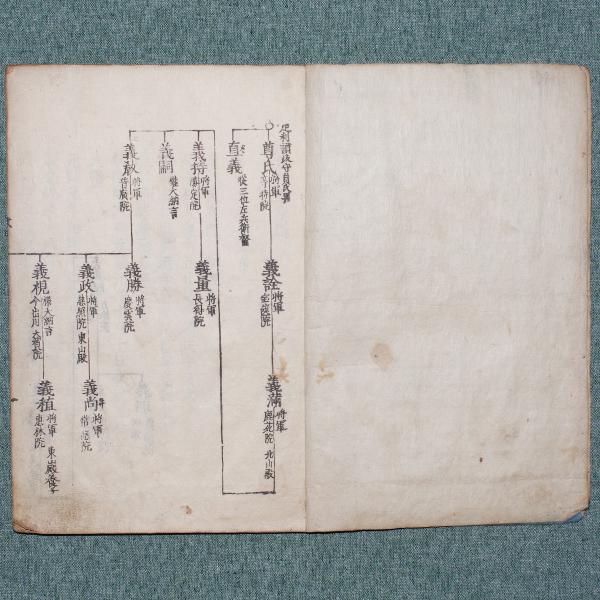 足利讃岐守貞氏男
尊氏 将軍 等持院
直義 従三位左兵衛督
義詮 将軍 宝筐院
義満 将軍 鹿苑院 北山殿
義持 将軍 勝定院
義量 将軍 長得院
義嗣 権大納言
義教 将軍 普廣院
義勝 将軍 慶雲院
義政 将軍 慈照院 東山殿
義尚 将軍 常徳院
義視 権大納言 今出川 大智院
義植 将軍 恵林院 東山殿養子